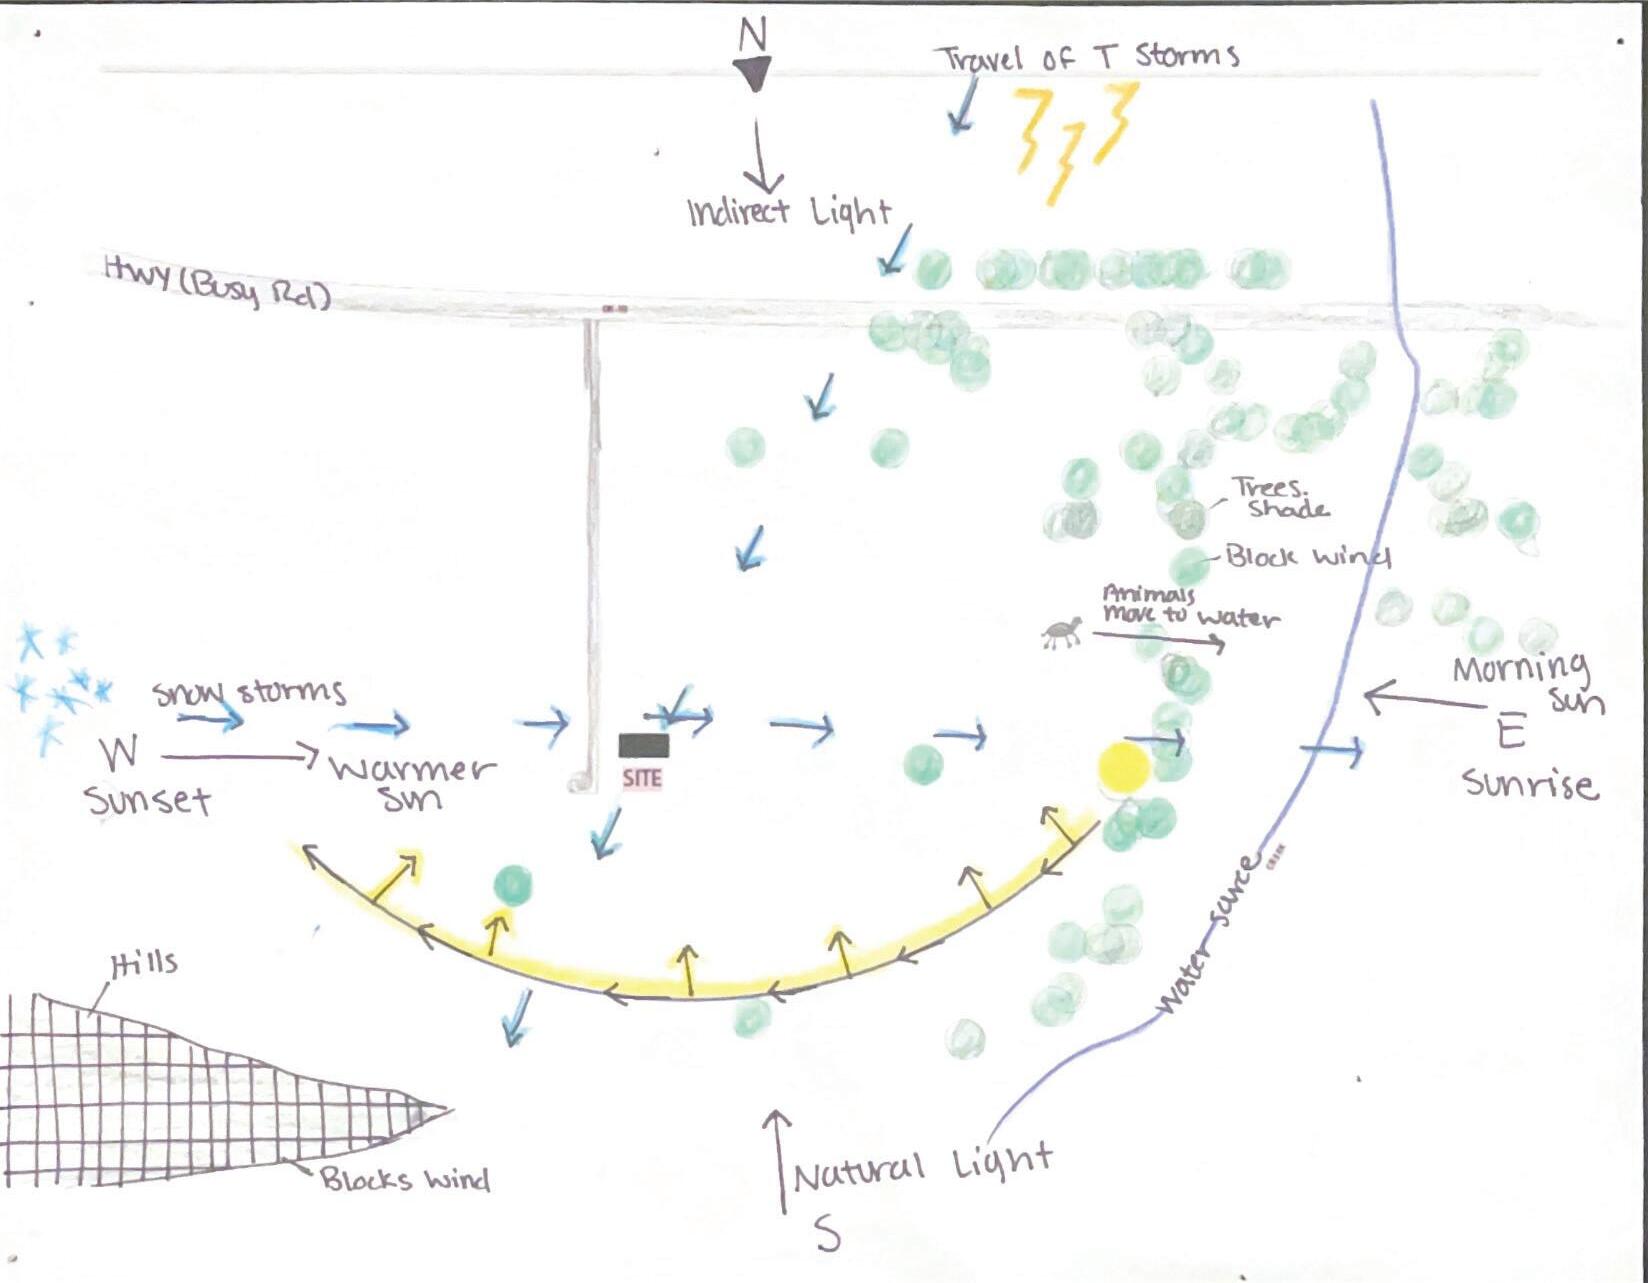 N
Travel of T Storms
Indirect Light
Hwy (Busy Rd)
Trees.
Shade
Block wind
Animals
move to water
Snow storms
W
Sunset
Warmer
Sun
SITE
Morning
Sun
E
Sunrise
CREEK
Water source
Hills
Blocks wind
Natural Light
S